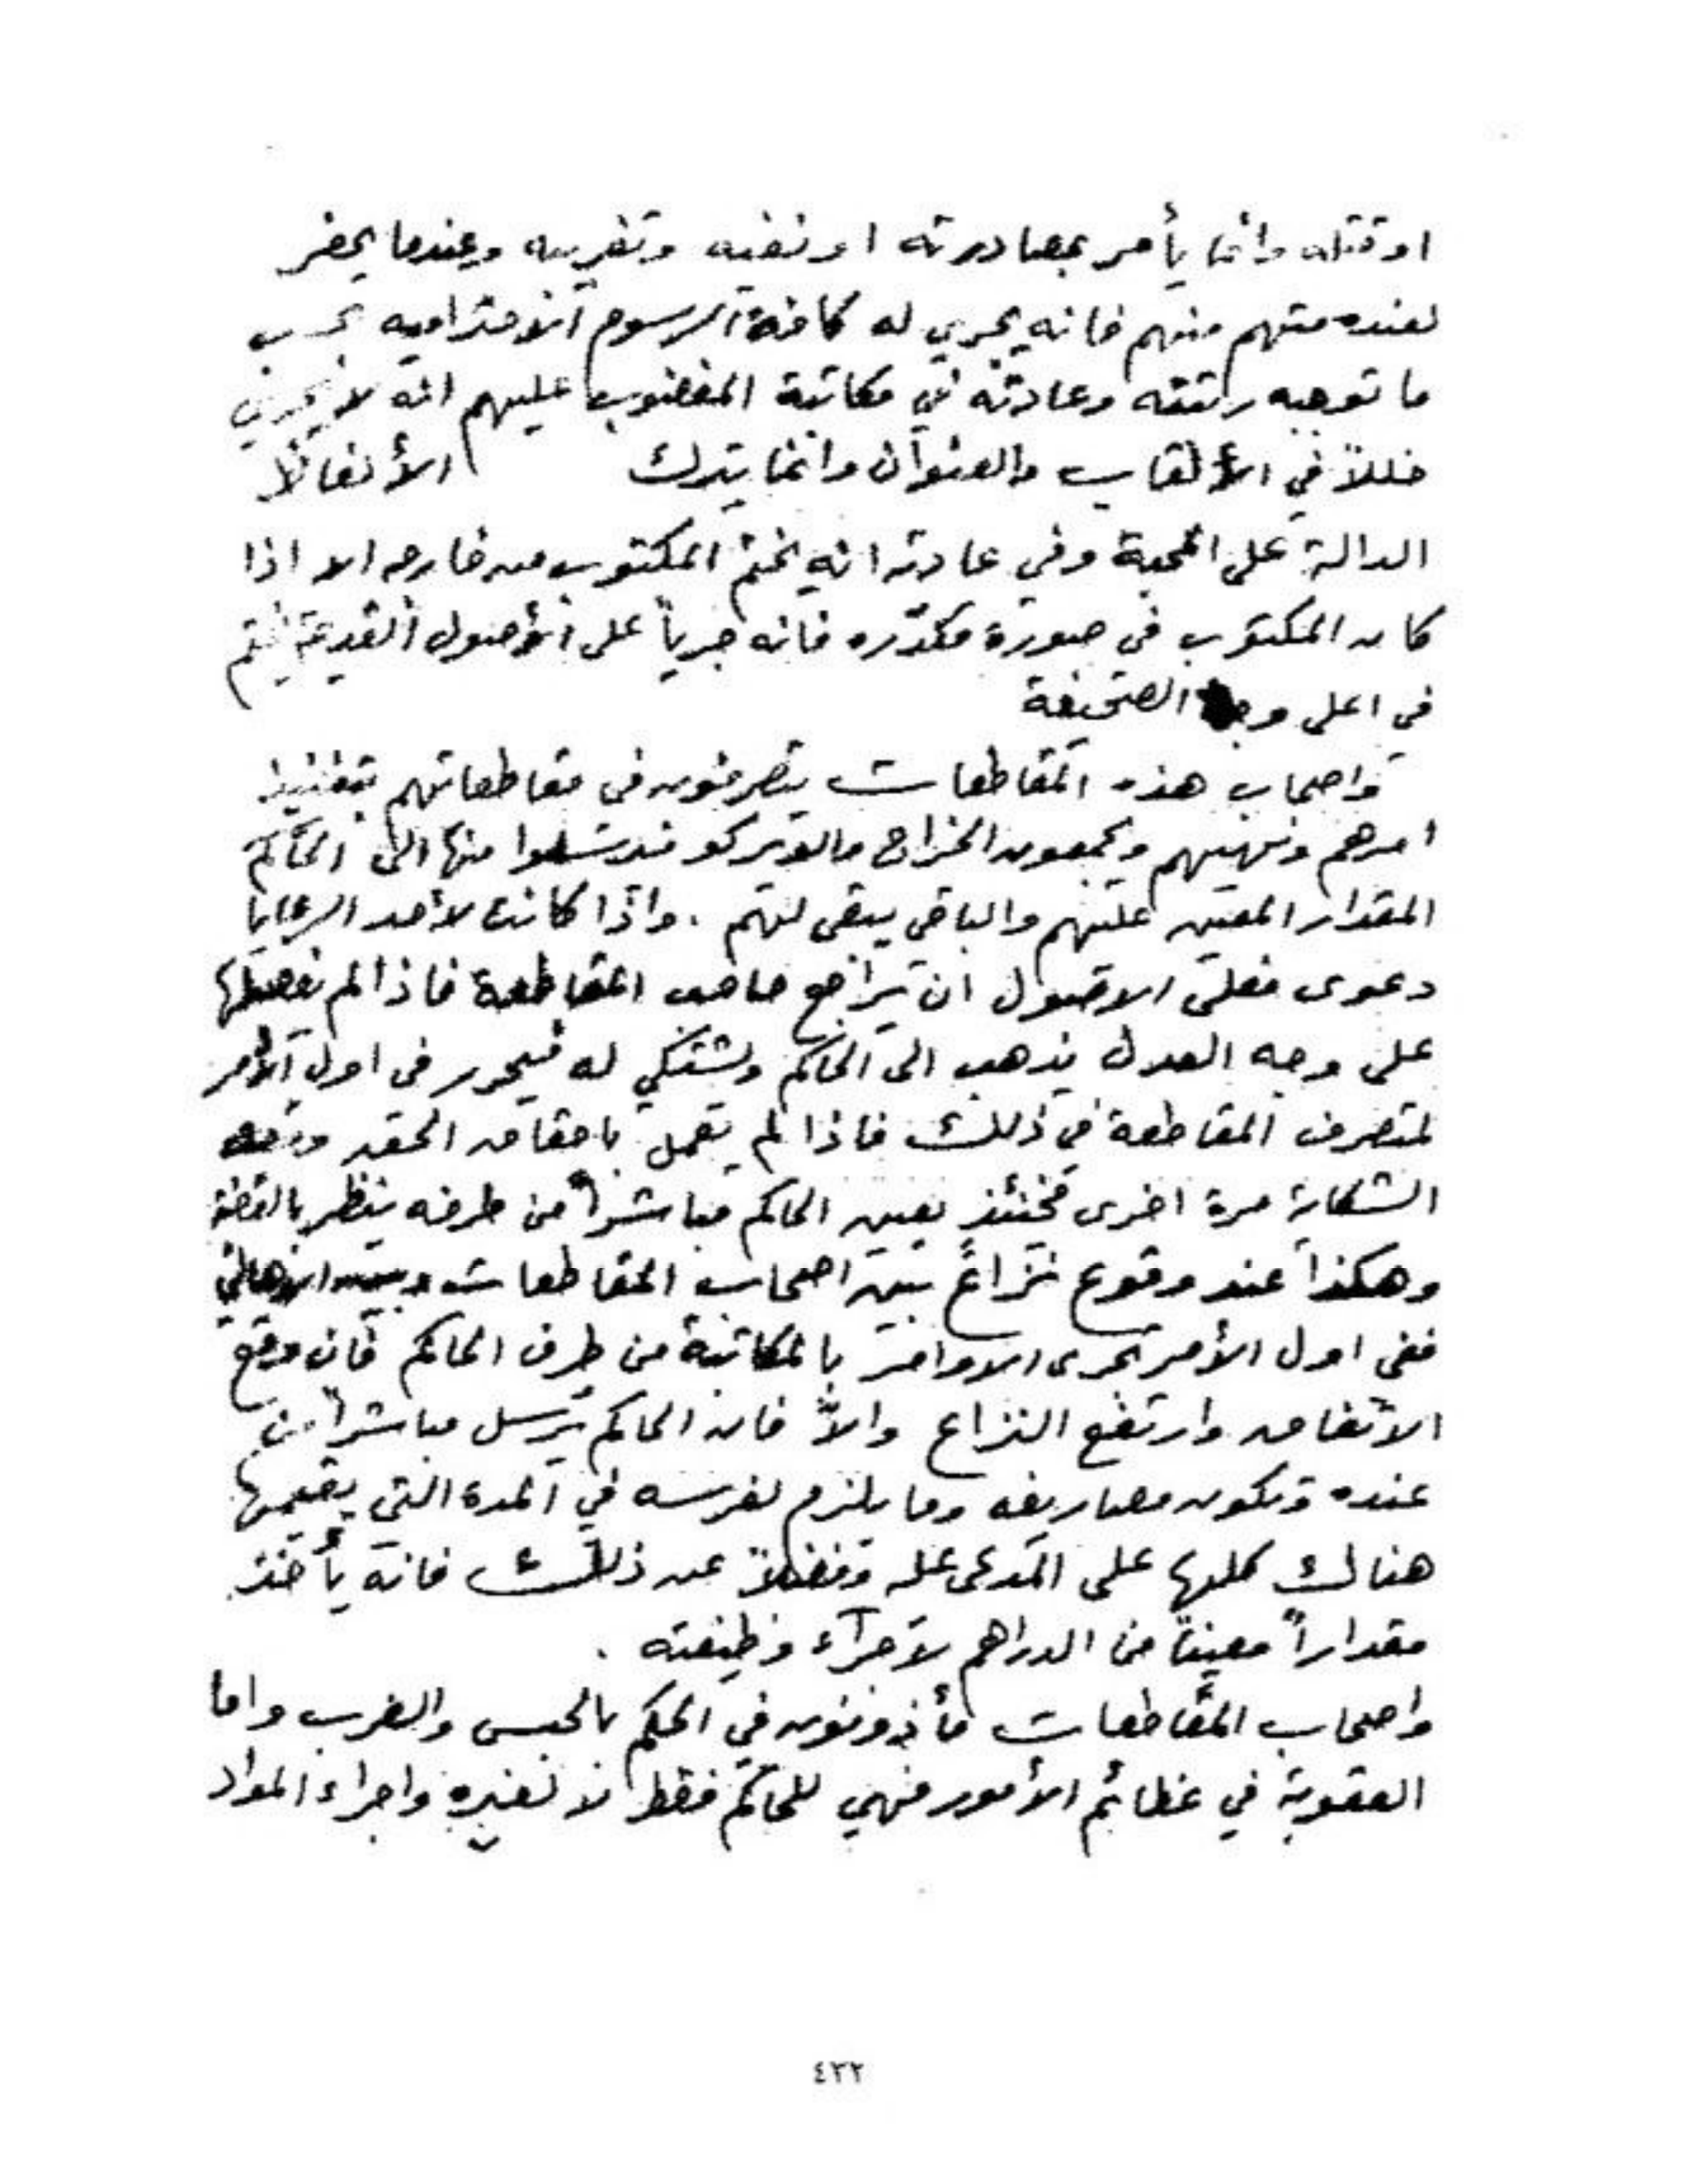 او قتله وانما يأمر بمصادرته او نفيه وتغريبه وعندما يحضر
لعنده متهم منهم فانه يجري له كافة الرسوم الاحتراميه بحسب
ما توجبه رتبته وعادته في مكاتبة المغضوب عليهم انه لا يجري
خللاً في الألقاب والعنوان وانما يترك الألفاظ
الدالة على المحبة وفي عادته انه يختم المكتوب من خارجه الا اذا
كان المكتوب في صورة مكدّره فانه جرياً على الأصول القديمة يختم
في اعلى وجه الصحيفة
واصحاب هذه المقاطعات يتصرفون في مقاطعاتهم بتنفيذ
امرهم ونهيهم ويجمعون الخراج والويركو فيرسلوا منها الى الحاكم
المقدار المعين عليهم والباقي يبقى لهم . واذا كانت لأحد الرعايا
دعوى فعلى الاصول ان يراجع صاحب المقاطعة فاذا لم يفصلها
على وجه العدل يذهب الى الحاكم ويشتكي له فيحرر في اول الأمر
لمتصرف المقاطعة في ذلك فاذا لم يعمل باحقاق الحق
الشكاية مرة اخرى فحينئذٍ يعين الحاكم مباشراً من طرفه ينظر بالقضية
وهكذا عند وقوع نزاع بين اصحاب المقاطعات وبين الاهالي
ففي اول الأمر تجري الاوامر بالمكاتبة من طرف الحاكم فان وقع
الاتفاق وارتفع النزاع والاّ فان الحاكم يرسل مباشراً من
عنده وتكون مصاريفه وما يلزم لفرسه في المدة التي يقيمها
هنالك كلها على المدعى عليه وفضلاً عن ذلك فانه يأخذ
مقداراً معيناً من الدراهم لاجراء وظيفته .
واصحاب المقاطعات مأذونون في الحكم بالحبس والضرب واما
العقوبة في عظائم الأمور فهي للحاكم فقط لا لغيره واجراء المواد
٤٣٢